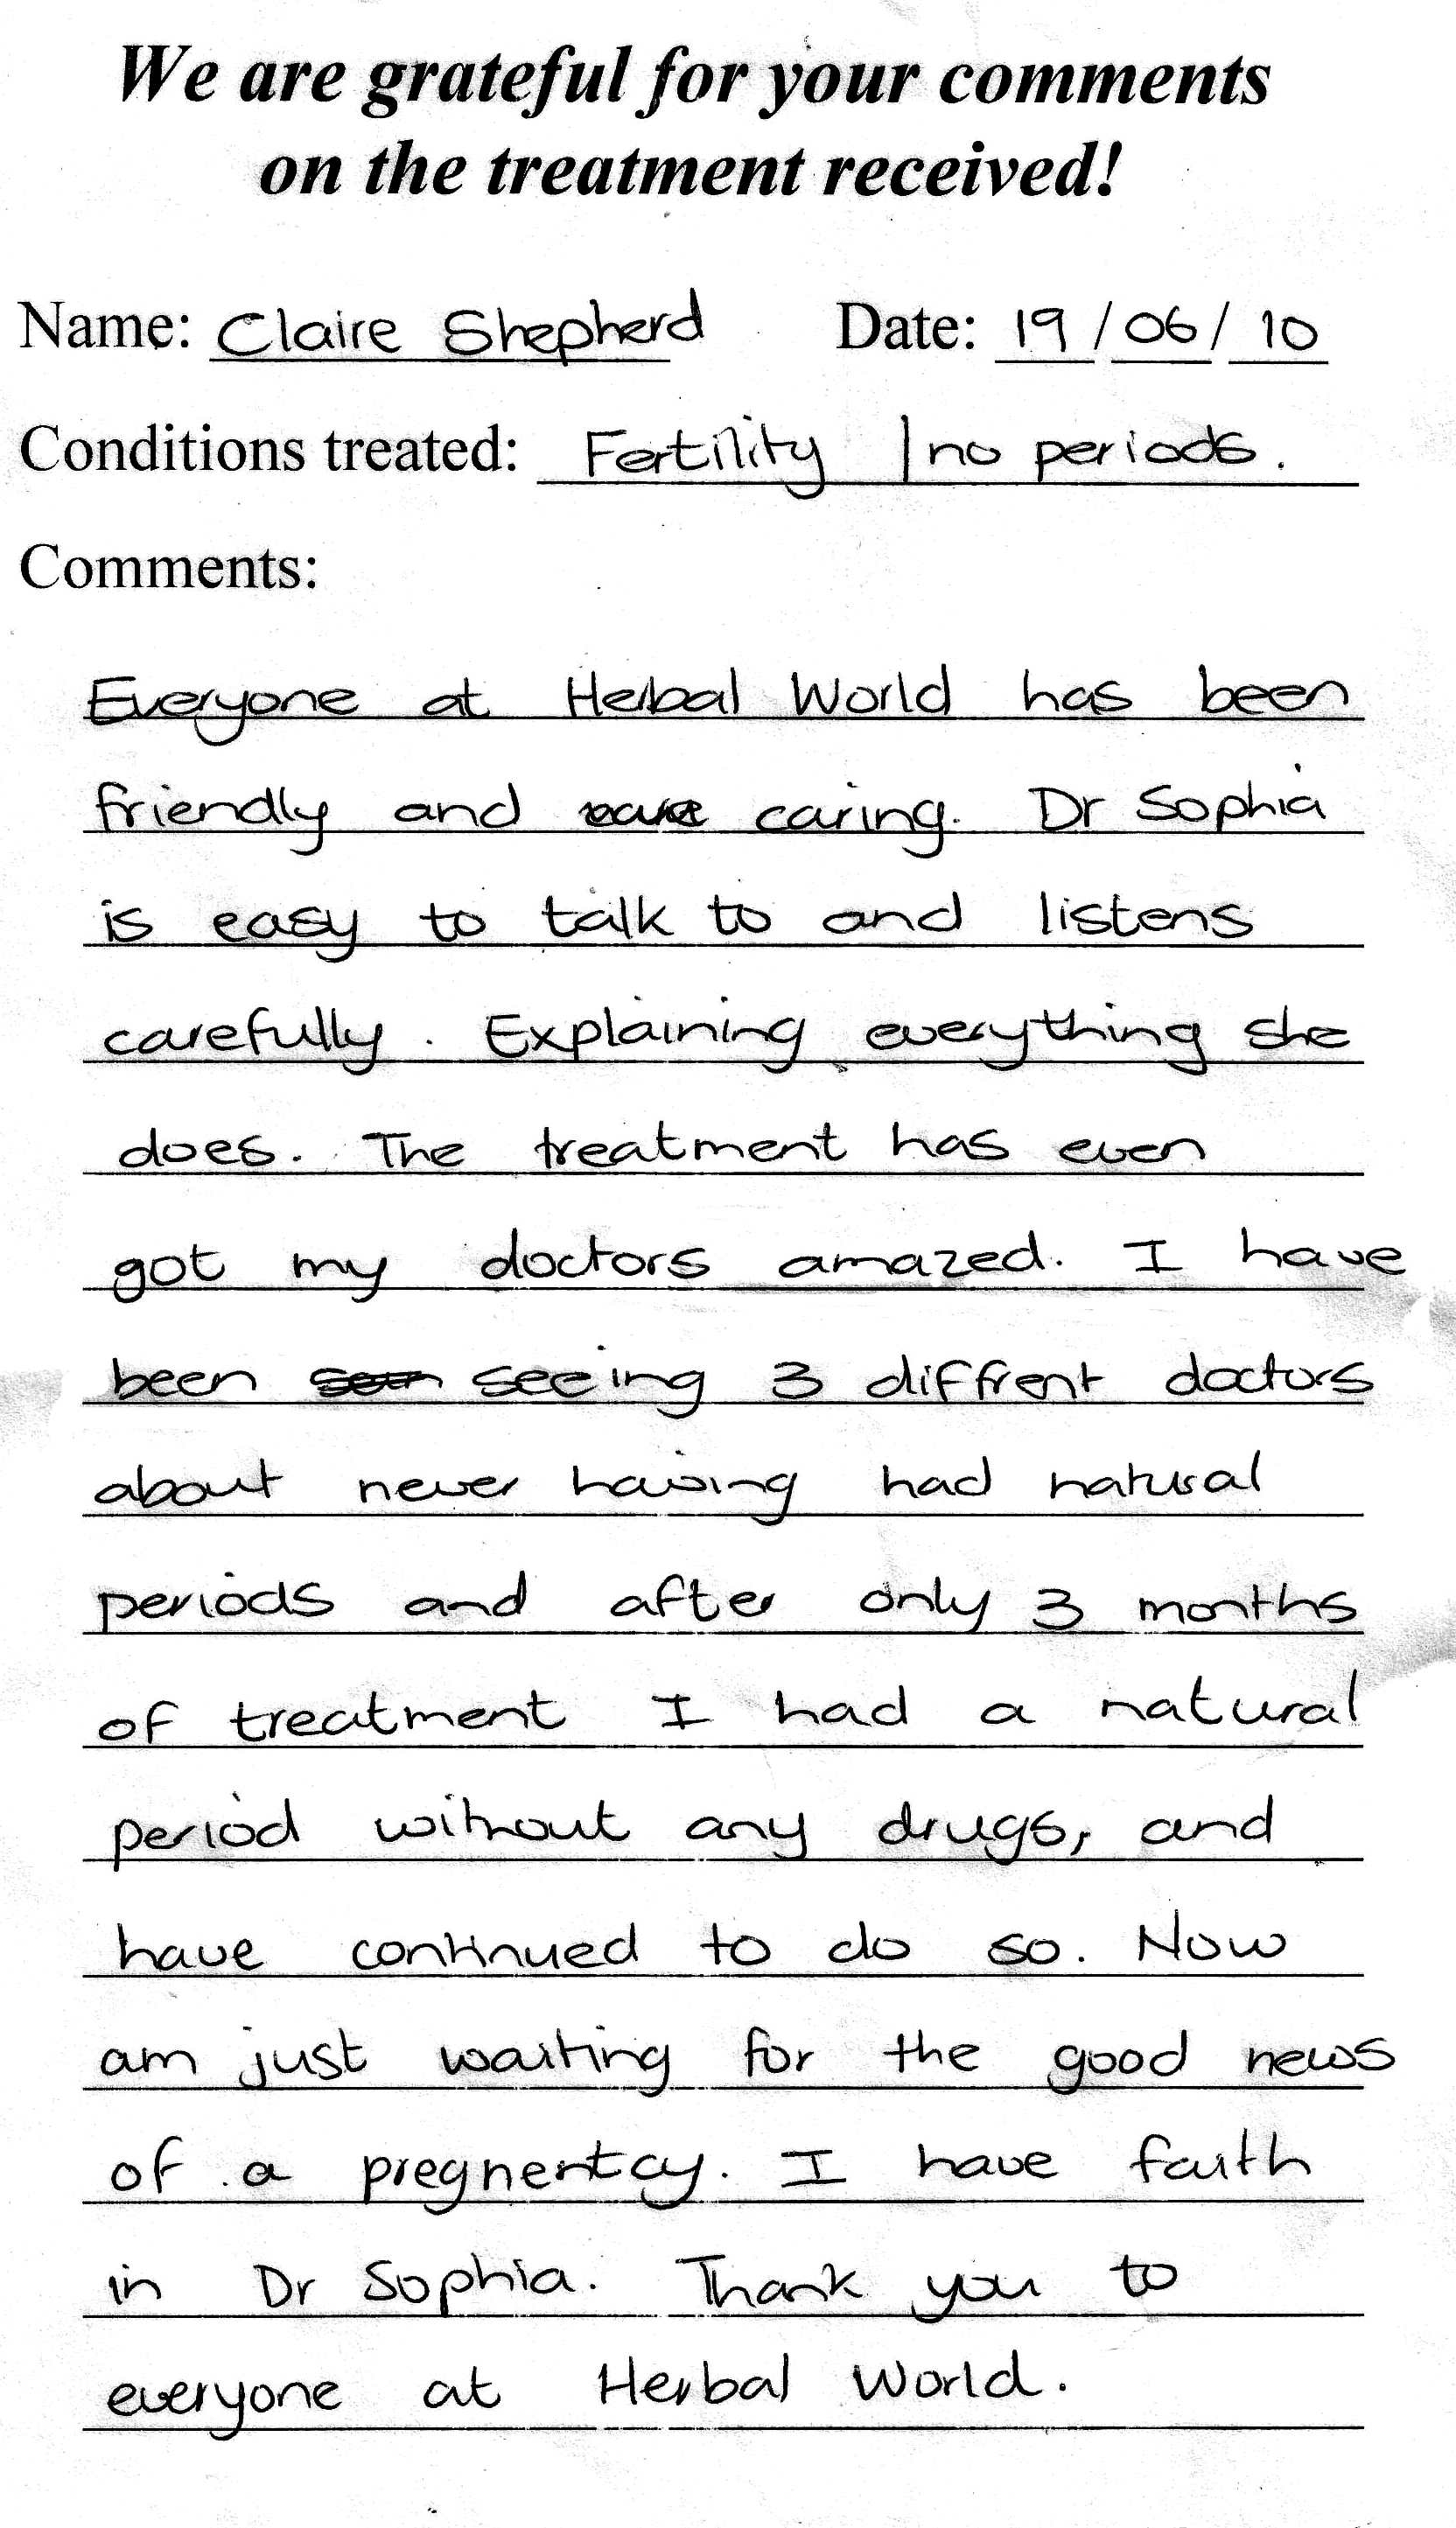 We are grateful for your comments
on the treatment received!
Name: Claire Shepherd Date: 19/06/10
Conditions treated: Fertility / no periods.
Comments:
Everyone at Herbal World has been
friendly and caring. Dr Sophia
is easy to talk to and listens
carefully. Explaining everything she
does. The treatment has even
got my doctors amazed. I have
been seeing 3 diffrent doctors
about never having had natural
periods and after only 3 months
of treatment I had a natural
period without any drugs, and
have continued to do so. Now
am just waiting for the good news
of a pregnentcy. I have faith
in Dr Sophia. Thank you to
everyone at Herbal World.